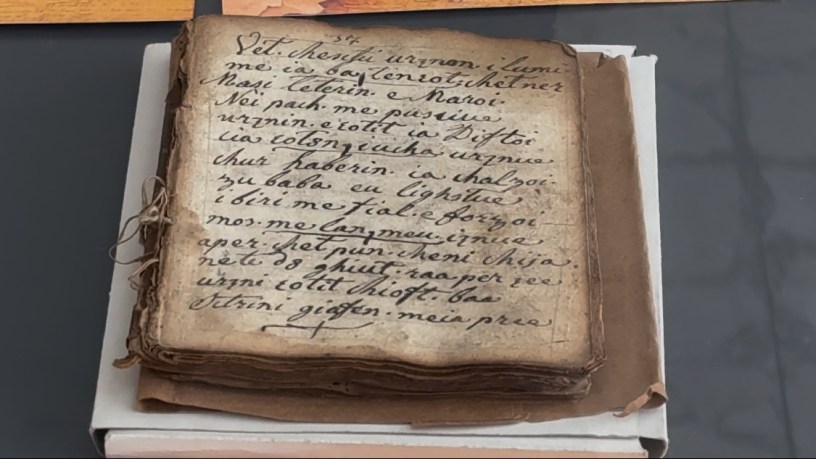 37
Vet. Chesctú urznon i lumi-
me ia ba, tenzot, chetner
Masi teterin. e Maroi.
Nei pach. me pusiiue
urznin. e zotit ia Diftoi
iia zotsn, iucha urznue
chur haberin. ia chalzoi.
zu baba eu lighstue
i biri me fial. e forzoi
mos. me lan, meu iznue
aper. chet pun. cheni chija.
nete ds ghiut. raa per zee
urzni zotit chioft. baa
Sctrini giafen. meia pree